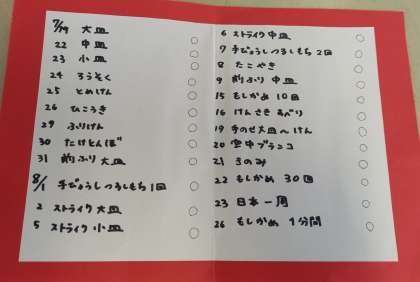 7/19 大皿
22 中皿
23 小皿
24 ろうそく
25 とめけん
26 ひこうき
29 ふりけん
30 たけとんぼ
31 前ふり 大皿
8/1 手びょうしつるしもち1回
2 ストライク大皿
5 ストライク 小皿
6 ストライク 中皿
7 手びょうしつるしもち 2回
8 たこやき
9 前ふり 中皿
15 もしかめ 10回
16 けんさきすべり
19 手のせ大皿〜けん
20 空中ブランコ
21 きのみ
22 もしかめ 30回
23 日本一周
26 もしかめ 1分間